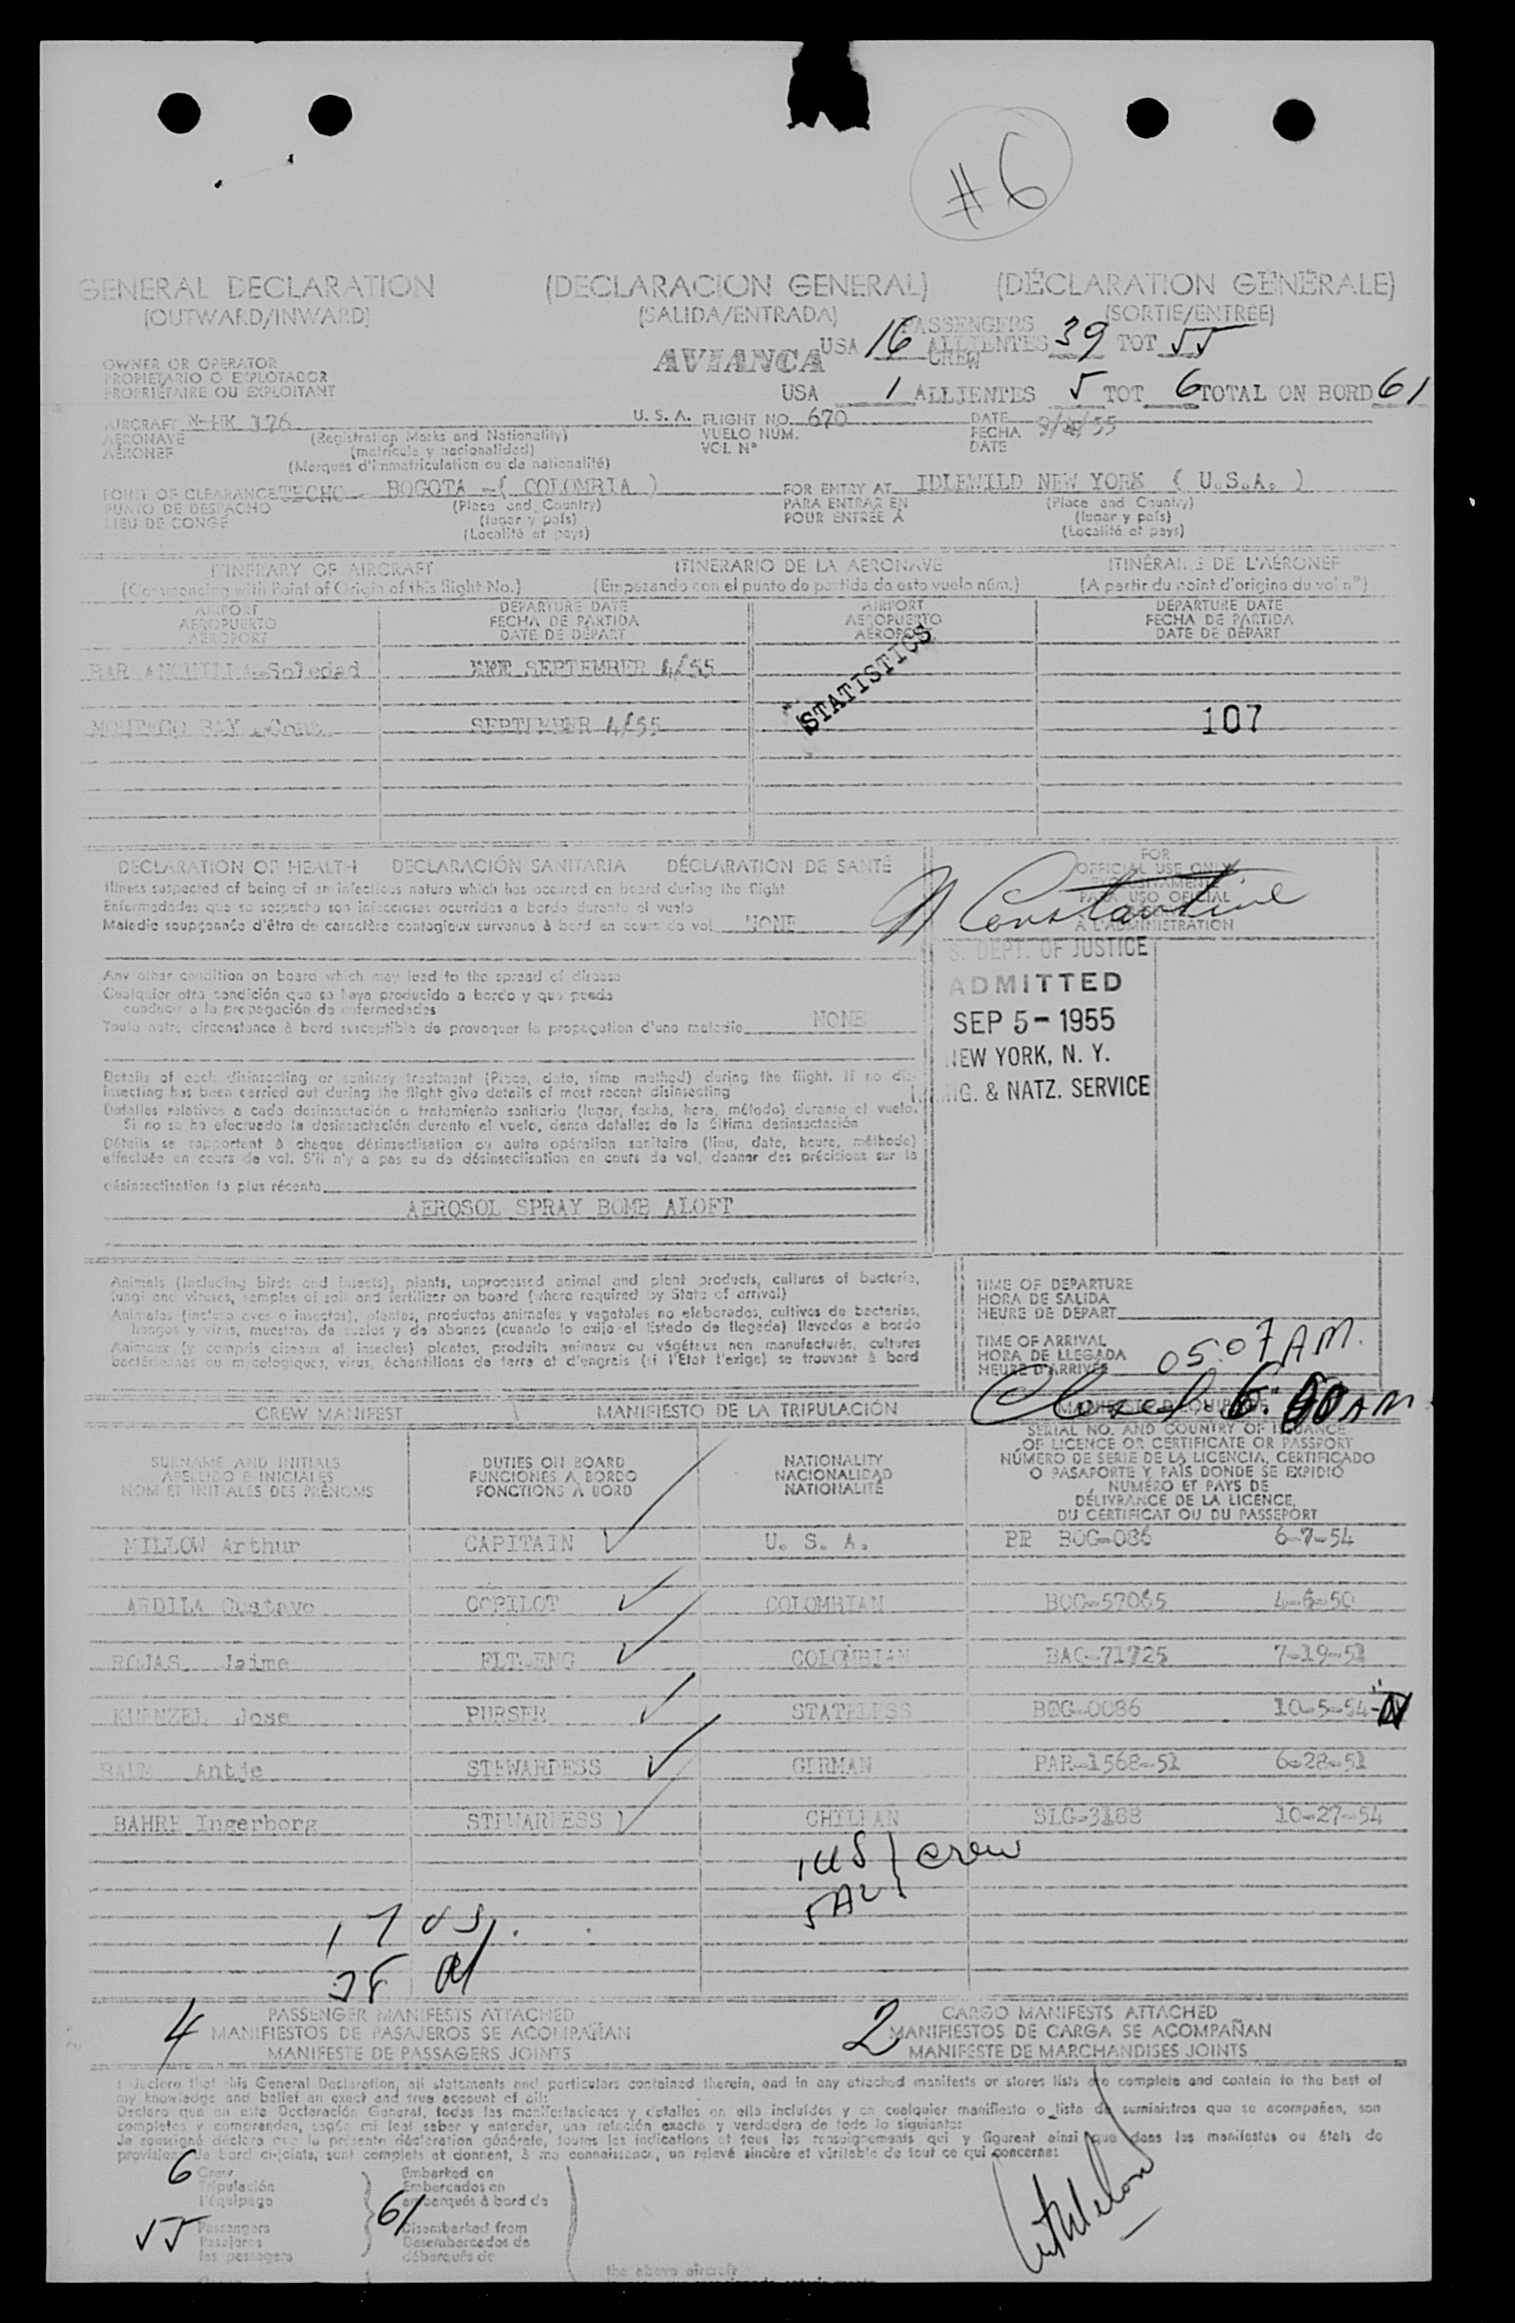 #6
GENERAL DECLARATION (DECLARACION GENERAL) (DÉCLARATION GÉNÉRALE)
(OUTWARD/INWARD) (SALIDA/ENTRADA) (SORTIE/ENTRÉE)
OWNER OR OPERATOR
PROPIETARIO O EXPLOTADOR
PROPRIÉTAIRE OU EXPLOITANT
AVIANCA
PASSENGERS
USA 16 ALLIENTES 39 TOT 55
CREW
USA 1 ALLIENTES 5 TOT 6 TOTAL ON BORD 61
AIRCRAFT N-HK 176 U.S.A. FLIGHT NO. 670 DATE
AERONAVE (Registration Marks and Nationality) VUELO NUM. FECHA
AÉRONEF (matrícula y nacionalidad) VOL Nº DATE
(Marques d'immatriculation ou de nationalité)
POINT OF CLEARANCE TECHO - BOGOTA -( COLOMBIA ) FOR ENTRY AT IDLEWILD NEW YORK ( U.S.A. )
PUNTO DE DESPACHO (Place and Country) PARA ENTRAR EN (Place and Country)
LIEU DE CONGÉ (lugar y país) POUR ENTRÉE A (lugar y país)
(Localité et pays) (Localité et pays)
ITINERARY OF AIRCRAFT ITINERARIO DE LA AERONAVE ITINÉRAIRE DE L'AÉRONEF
(Commencing with Point of Origin of this flight No.) (Empezando con el punto de partida de este vuelo núm.) (A partir du point d'origine du vol nº)
AIRPORT DEPARTURE DATE AIRPORT DEPARTURE DATE
AEROPUERTO FECHA DE PARTIDA AEROPUERTO FECHA DE PARTIDA
AÉROPORT DATE DE DÉPART AÉROPORT DATE DE DÉPART
BARANQUILLA-Soledad SEPTEMBER 4/55
STATISTICS
MONTEGO BAY SEPTEMBER 4/55 107
DECLARATION OF HEALTH DECLARACIÓN SANITARIA DÉCLARATION DE SANTÉ
Illness suspected of being of an infectious nature which has occurred on board during the flight
Enfermedades que se sospecha son infecciosas ocurridas a bordo durante el vuelo
Maladie soupçonnée d'être de caractère contagieux survenue à bord en cours de vol NONE
FOR
OFFICIAL USE ONLY
EXCLUSIVAMENTE
PARA USO OFICIAL
A L'ADMINISTRATION
Constantine
Any other condition on board which may lead to the spread of disease
Cualquier otra condición que se haya producido a bordo y que pueda
conducir a la propagación de enfermedades
Toute autre circonstance à bord susceptible de provoquer la propagation d'une maladie NONE
S. DEPT. OF JUSTICE
ADMITTED
SEP 5 - 1955
NEW YORK, N. Y.
IG. & NATZ. SERVICE
Details of each disinsecting or sanitary treatment (Place, date, time method) during the flight. If no dis-
insecting has been carried out during the flight give details of most recent disinsecting
Detalles relativos a cada desinsectación o tratamiento sanitario (lugar, fecha, hora, método) durante el vuelo.
Si no se ha efectuado la desinsectación durante el vuelo, dense detalles de la última desinsectación
Détails se rapportent à chaque désinsectisation ou autre opération sanitaire (lieu, date, heure, méthode)
effectuée en cours de vol. S'il n'y a pas eu de désinsectisation en cours de vol, donner des précisions sur la
désinsectisation la plus récente
AEROSOL SPRAY BOMB ALOFT
Animals (including birds and insects), plants, unprocessed animal and plant products, cultures of bacteria,
fungi and viruses, samples of soil and fertilizer on board (where required by State of arrival)
Animales (incluso aves e insectos), plantas, productos animales y vegetales no elaborados, cultivos de bacterias,
hongos y virus, muestras de suelos y de abonos (cuando lo exija el Estado de llegada) llevados a bordo
Animaux (y compris oiseaux et insectes) plantes, produits animaux ou végétaux non manufacturés, cultures
bactériennes ou mycologiques, virus, échantillons de terre et d'engrais (si l'Etat l'exige) se trouvant à bord
TIME OF DEPARTURE
HORA DE SALIDA
HEURE DE DÉPART
TIME OF ARRIVAL
HORA DE LLEGADA 05:07 AM.
HEURE D'ARRIVÉE
Closed. 6: AM
CREW MANIFEST MANIFIESTO DE LA TRIPULACIÓN
SURNAME AND INITIALS DUTIES ON BOARD NATIONALITY SERIAL NO. AND COUNTRY OF ISSUANCE
APELLIDO E INICIALES FUNCIONES A BORDO NACIONALIDAD OF LICENCE OR CERTIFICATE OR PASSPORT
NOM ET INITIALES DES PRÉNOMS FONCTIONS À BORD NATIONALITÉ NÚMERO DE SERIE DE LA LICENCIA, CERTIFICADO
O PASAPORTE Y PAÍS DONDE SE EXPIDIÓ
NUMÉRO ET PAYS DE
DÉLIVRANCE DE LA LICENCE,
DU CERTIFICAT OU DU PASSEPORT
MILLOW Arthur CAPITAIN U. S. A. PP BOG-086 6-7-54
ARDILA Gustavo COPILOT COLOMBIAN BOG-57065 4-6-50
ROJAS Jaime FLT-ENG COLOMBIAN BAQ-71725 7-19-51
KUENZEL Jose PURSER STATELESS BOG-0086 10-5-54
BAUM Antje STEWARDESS GERMAN PAR-1568-51 6-28-51
BAHRE Ingerborg STEWARDESS CHILEAN SLG-3188 10-27-54
1 US } crew
5 AL
17 US.
38 Al
4 PASSENGER MANIFESTS ATTACHED 2 CARGO MANIFESTS ATTACHED
MANIFIESTOS DE PASAJEROS SE ACOMPAÑAN MANIFIESTOS DE CARGA SE ACOMPAÑAN
MANIFESTE DE PASSAGERS JOINTS MANIFESTE DE MARCHANDISES JOINTS
I declare that this General Declaration, all statements and particulars contained therein, and in any attached manifests or stores lists are complete and contain to the best of
my knowledge and belief an exact and true account of all:
Declaro que en esta Declaración General, todas las manifestaciones y detalles en ella incluídos y en cualquier manifiesto o lista de suministros que se acompañen, son
completos y comprenden, según mi leal saber y entender, una relación exacta y verdadera de todo lo siguiente:
Je soussigné déclare que la présente déclaration générale, toutes les indications et tous les renseignements qui y figurent ainsi que dans les manifestes ou états de
provisions de bord ci-joints, sont complets et donnent, à ma connaissance, un relevé sincère et véritable de tout ce qui concerne:
6 Crew Embarked on
Tripulación Embarcados en
l'équipage embarqués à bord de
61
55 Passengers Disembarked from
Pasajeros Desembarcados de
les passagers débarqués de
the above aircraft